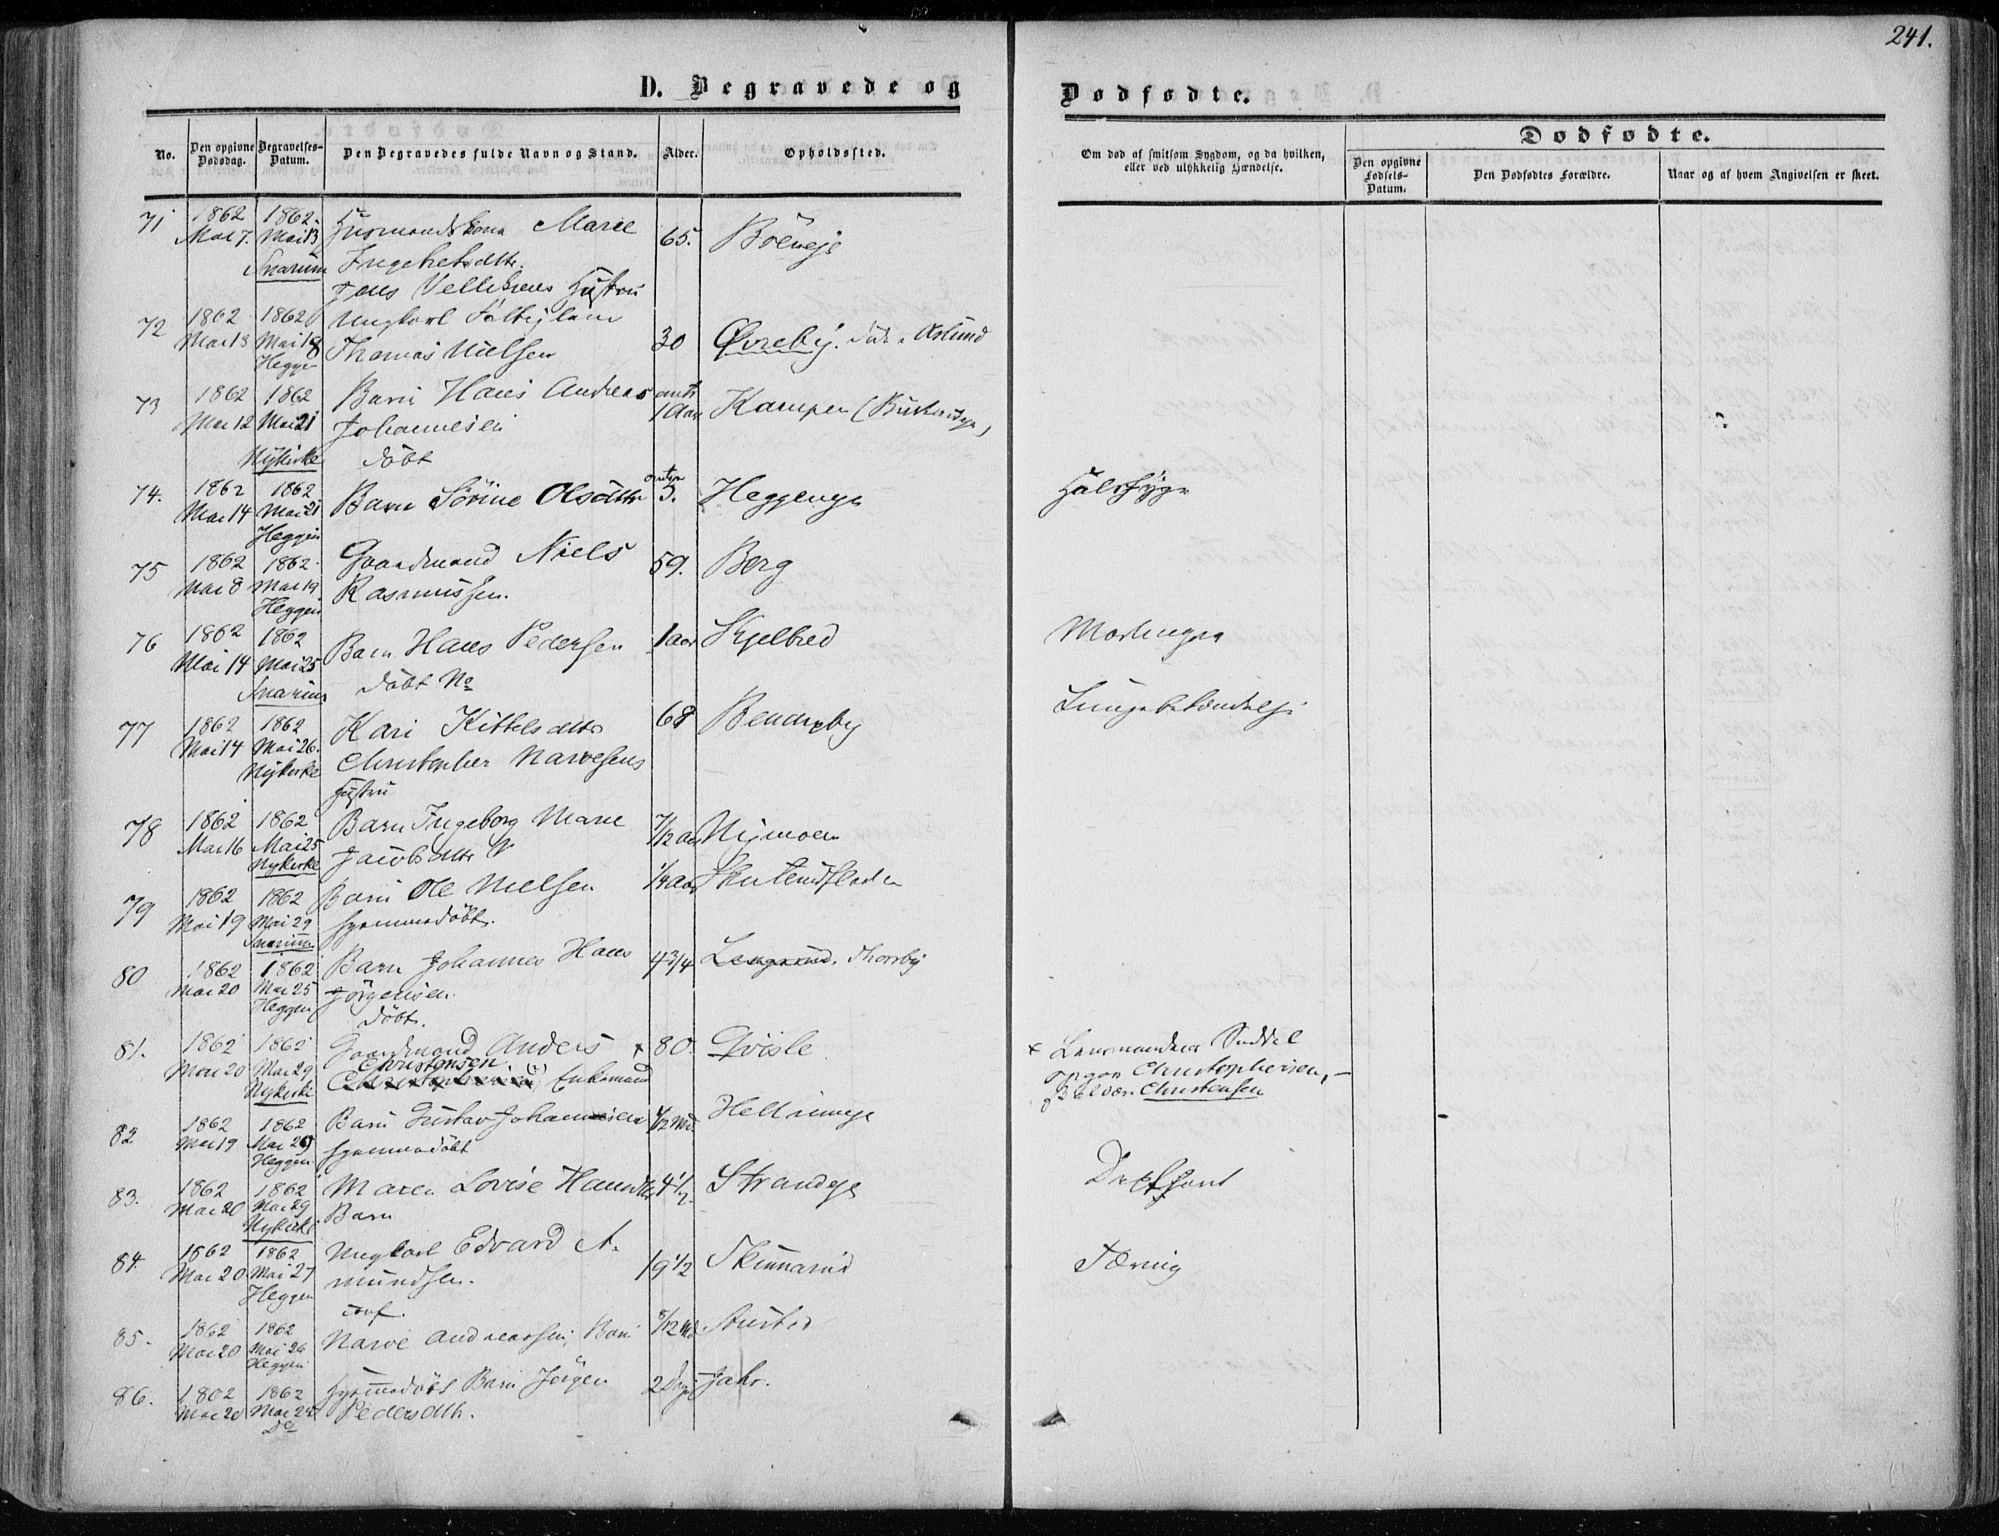 241.
D. Begravede og
Dødfødte.
No.
Den opgivne Dødsdag.
Begravelses-Datum.
Den Begravedes fulde Navn og Stand.
Alder.
Opholdssted.
Om død af smitsom Sygdom, og da hvilken, eller ved ulykkelig Hændelse.
Dødfødte.
Den opgivne Fødsels-Datum.
Den Dødfødtes Forældre.
Naar og af hvem Angivelsen er skeet.
71 1862 1862 Husmandskone Marie
Mai 7. Mai 13 65.
Snarum Ingebretsdtr.
Jens Hustru
72 1862 1862 Ungkarl
Mai 13 Mai 18 Thomas Nielsen 30 Øvreby. Aslund
Heggen
73 1862 1862 Barn Hans Andreas
Mai 12 Mai 21 Johannesen 1 Aar Kampen
Nykirke døbt
74. 1862 1862 Barn Sörine Olsdttr 3. Heggenge Halssyge
Mai 14 Mai 21
Heggen
75 1862 1862 Gaardmand Niels 59. Berg
Mai 8 Mai 19 Rasmussen.
Heggen
76 1862 1862 Barn Hans Pedersen 1 aar Skjelbred
Mai 14 Mai 25
Snarum døbt No
77 1862 1862 Kari Kittelsdttr 68 Bendixby Lungebetændelse
Mai 14 Mai 26. Christopher Narvesens
Nykirke Hustru
78 1862 1862 Barn Ingeborg Marie 7/12 aar Nymoen
Mai 16 Mai 25 Jacobsdttr
Nykirke
79 1862 1862 Barn Ole Nielsen 1/4 aar
Mai 19 Mai 29 hjemmedøbt.
Snarum
80 1862 1862 Barn Johannes Hans 4 3/4 Thorsby
Mai 20 Mai 25 Jörgensen.
Heggen døbt.
81. 1862 1862 Gaardmand Anders x 80. Qvisle
Mai 20 Mai 29 Christensen. Enkemand
Nykirke
x Lensmandens
opgav Christophersen, -
Christensen
82 1862 1862 Barn Gustav Johannesen 1/2 Md.
Mai 19 Mai 29 hjemmedøbt
Heggen
83. 1862 1862 Maren Lovise Hansdtr 4 1/2 Strandeje
Mai 20 Mai 29 Barn
Nykirke
84. 1862 1862 Ungkarl Edvard A- 19 1/2 Skinnarud Tæring
Mai 20 Mai 27 mundsen.
Heggen conf.
85. 1862 1862 Narve Andreassen, Barn 8/12 Md
Mai 20 Mai 26
Heggen
86. 1862 1862 Hjemmedøbt Barn Jörgen 2 Dage Jahr.
Mai 20 Mai 29 Pedersdtr.
Do